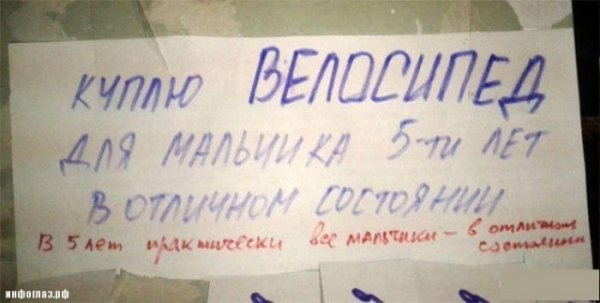 куплю ВЕЛОСИПЕД
для мальчика 5-ти лет
в отличном состоянии
В 5 лет практически все мальчики - в отличном
состоянии
инфоглаз.рф